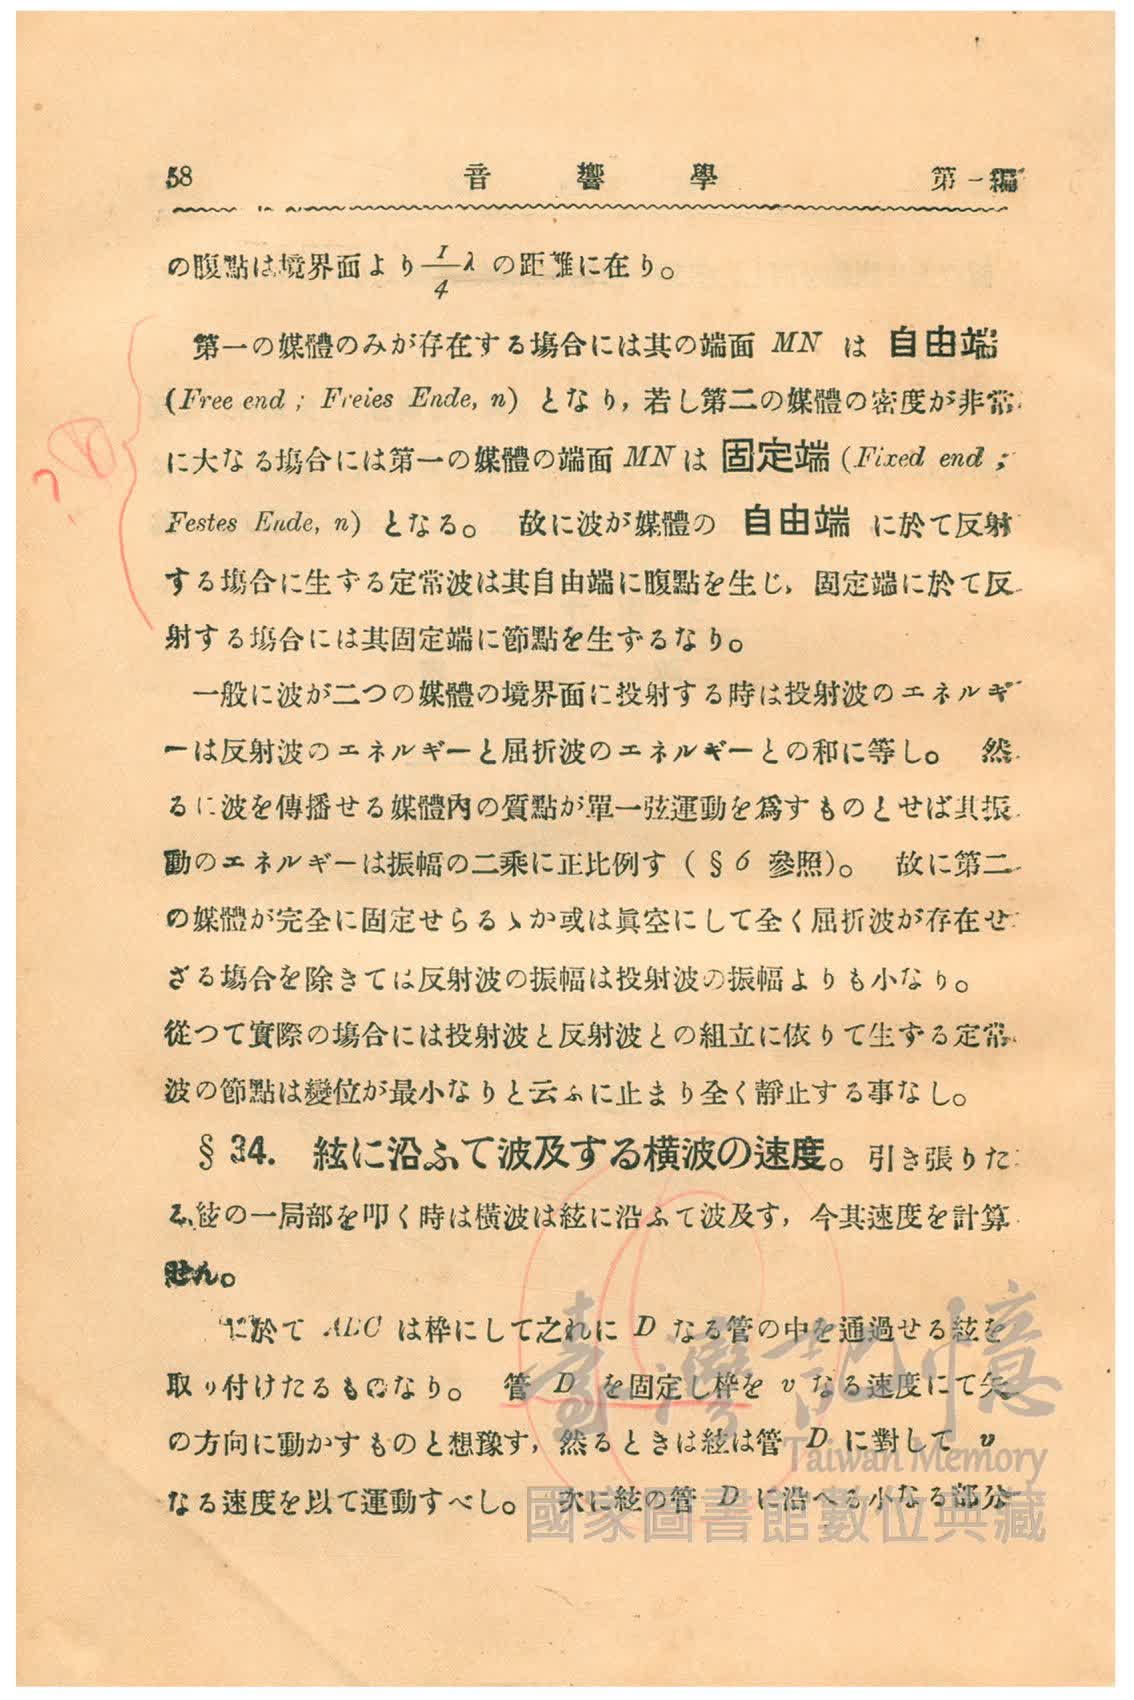 58 音響學 第一編
の腹點は境界面より 1/4 λ の距離に在り。
第一の媒體のみが存在する場合には其の端面 MN は 自由端
(Free end ; Freies Ende, n) となり, 若し第二の媒體の密度が非常
に大なる場合には第一の媒體の端面 MN は 固定端 (Fixed end ;
Festes Ende, n) となる。 故に波が媒體の 自由端 に於て反射
する場合に生ずる定常波は其自由端に腹點を生じ, 固定端に於て反
射する場合には其固定端に節點を生ずるなり。
一般に波が二つの媒體の境界面に投射する時は投射波のエネルギ
ーは反射波のエネルギーと屈折波のエネルギーとの和に等し。 然
るに波を傳播せる媒體內の質點が單一弦運動を爲すものとせば其振
動のエネルギーは振幅の二乘に正比例す ( § 6 參照)。 故に第二
の媒體が完全に固定せらるゝか或は眞空にして全く屈折波が存在せ
ざる場合を除きては反射波の振幅は投射波の振幅よりも小なり。
從つて實際の場合には投射波と反射波との組立に依りて生ずる定常
波の節點は變位が最小なりと云ふに止まり全く靜止する事なし。
§ 34. 絃に沿ふて波及する橫波の速度。 引き張りた
る絃の一局部を叩く時は橫波は絃に沿ふて波及す, 今其速度を計算
せん。
に於て ABC は枠にして之れに D なる管の中を通過せる絃を
取り付けたるものなり。 管 D を固定し枠を v なる速度にて矢
の方向に動かすものと想豫す, 然るときは絃は管 D に對して v
なる速度を以て運動すべし。 次に絃の管 D に沿へる小なる部分
臺灣記憶
Taiwan Memory
國家圖書館數位典藏